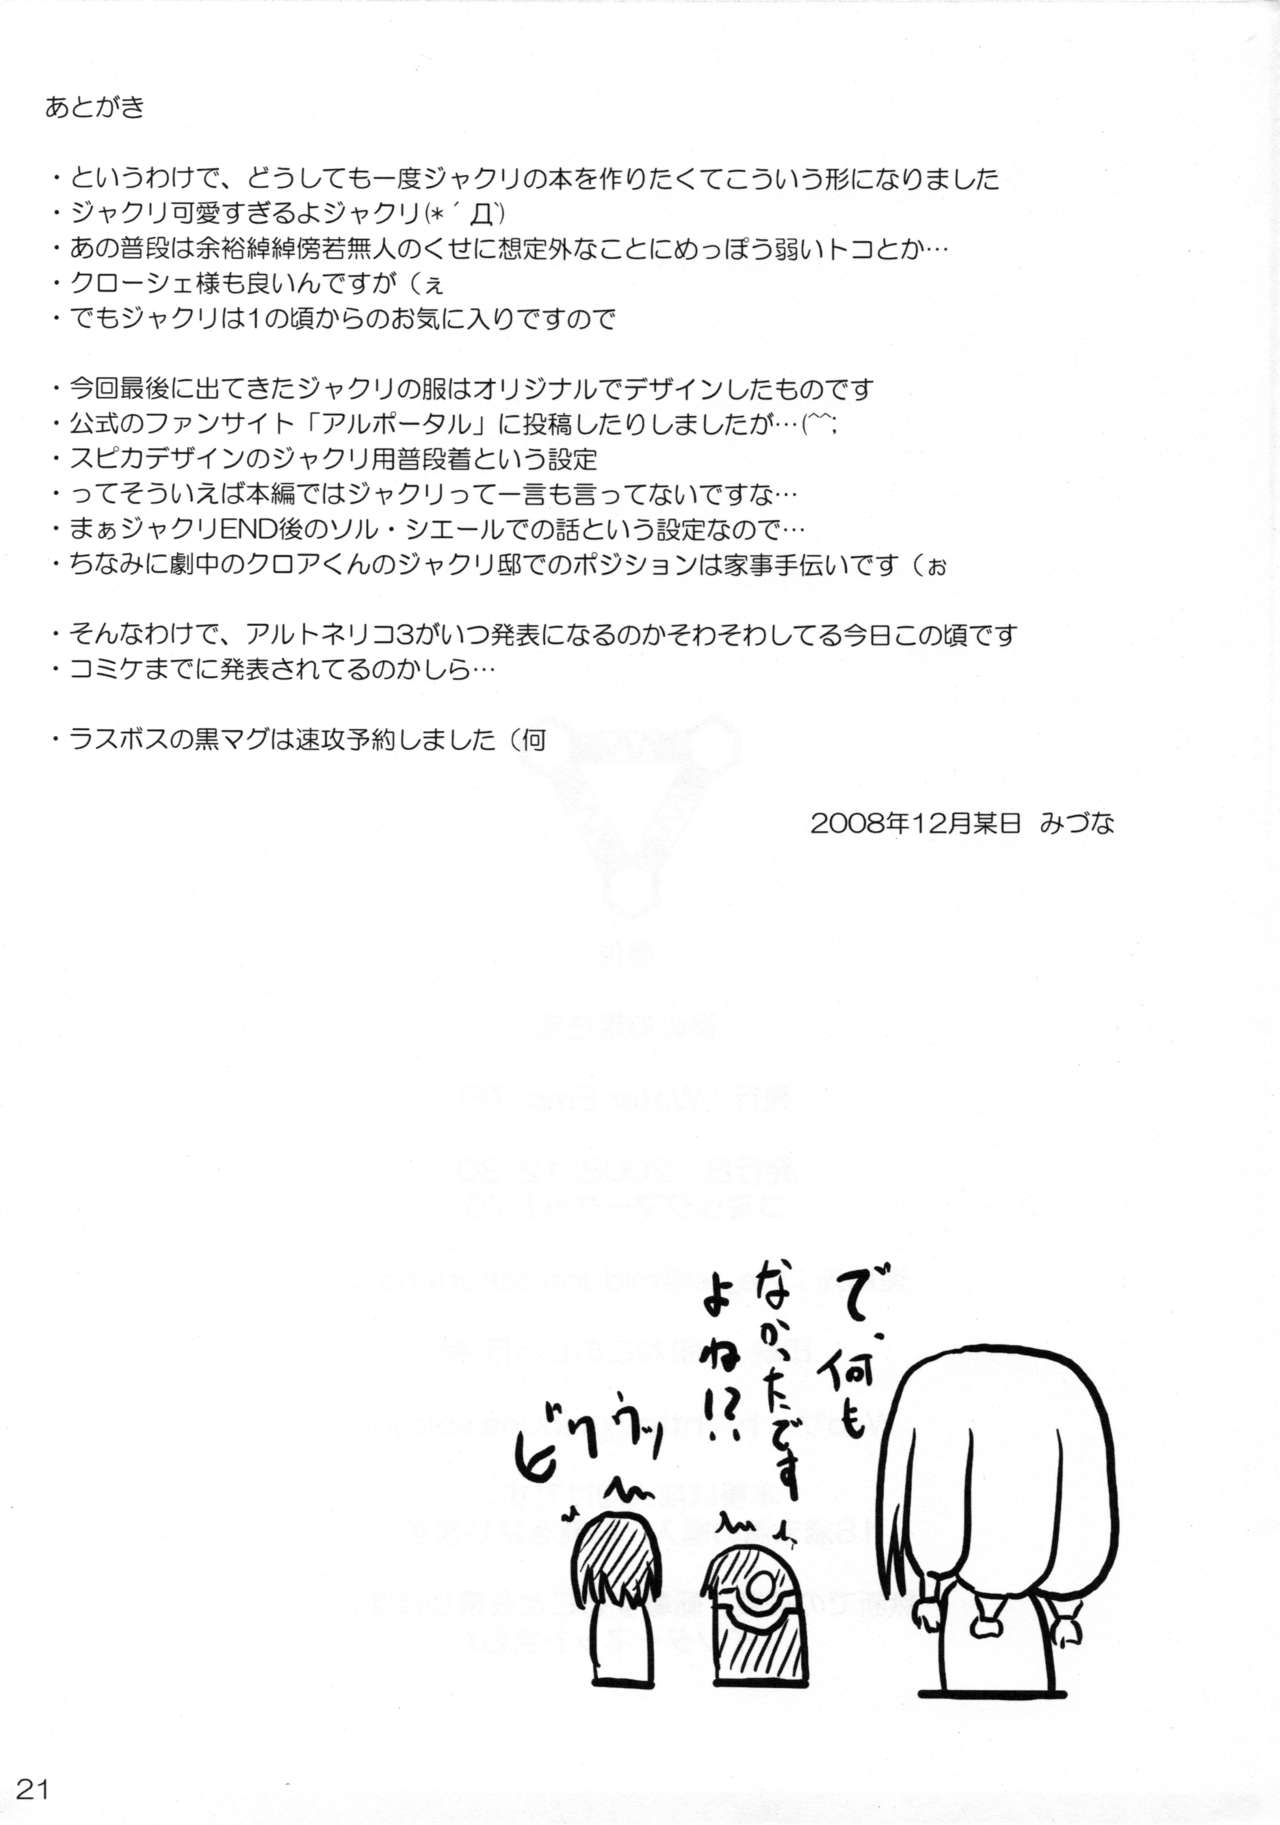 あとがき
・というわけで、どうしても一度ジャクリの本を作りたくてこういう形になりました
・ジャクリ可愛すぎるよジャクリ(*´Д`)
・あの普段は余裕綽綽傍若無人のくせに想定外なことにめっぽう弱いトコとか…
・クローシェ様も良いんですが（ぇ
・でもジャクリは1の頃からのお気に入りですので
・今回最後に出てきたジャクリの服はオリジナルでデザインしたものです
・公式のファンサイト「アルポータル」に投稿したりしましたが…(^^;
・スピカデザインのジャクリ用普段着という設定
・ってそういえば本編ではジャクリって一言も言ってないですな…
・まぁジャクリEND後のソル・シエールでの話という設定なので…
・ちなみに劇中のクロアくんのジャクリ邸でのポジションは家事手伝いです（ぉ
・そんなわけで、アルトネリコ3がいつ発表になるのかそわそわしてる今日この頃です
・コミケまでに発表されてるのかしら…
・ラスボスの黒マグは速攻予約しました（何
2008年12月某日 みづな
で、何も
なかったです
よね!?
ビクウッ
21